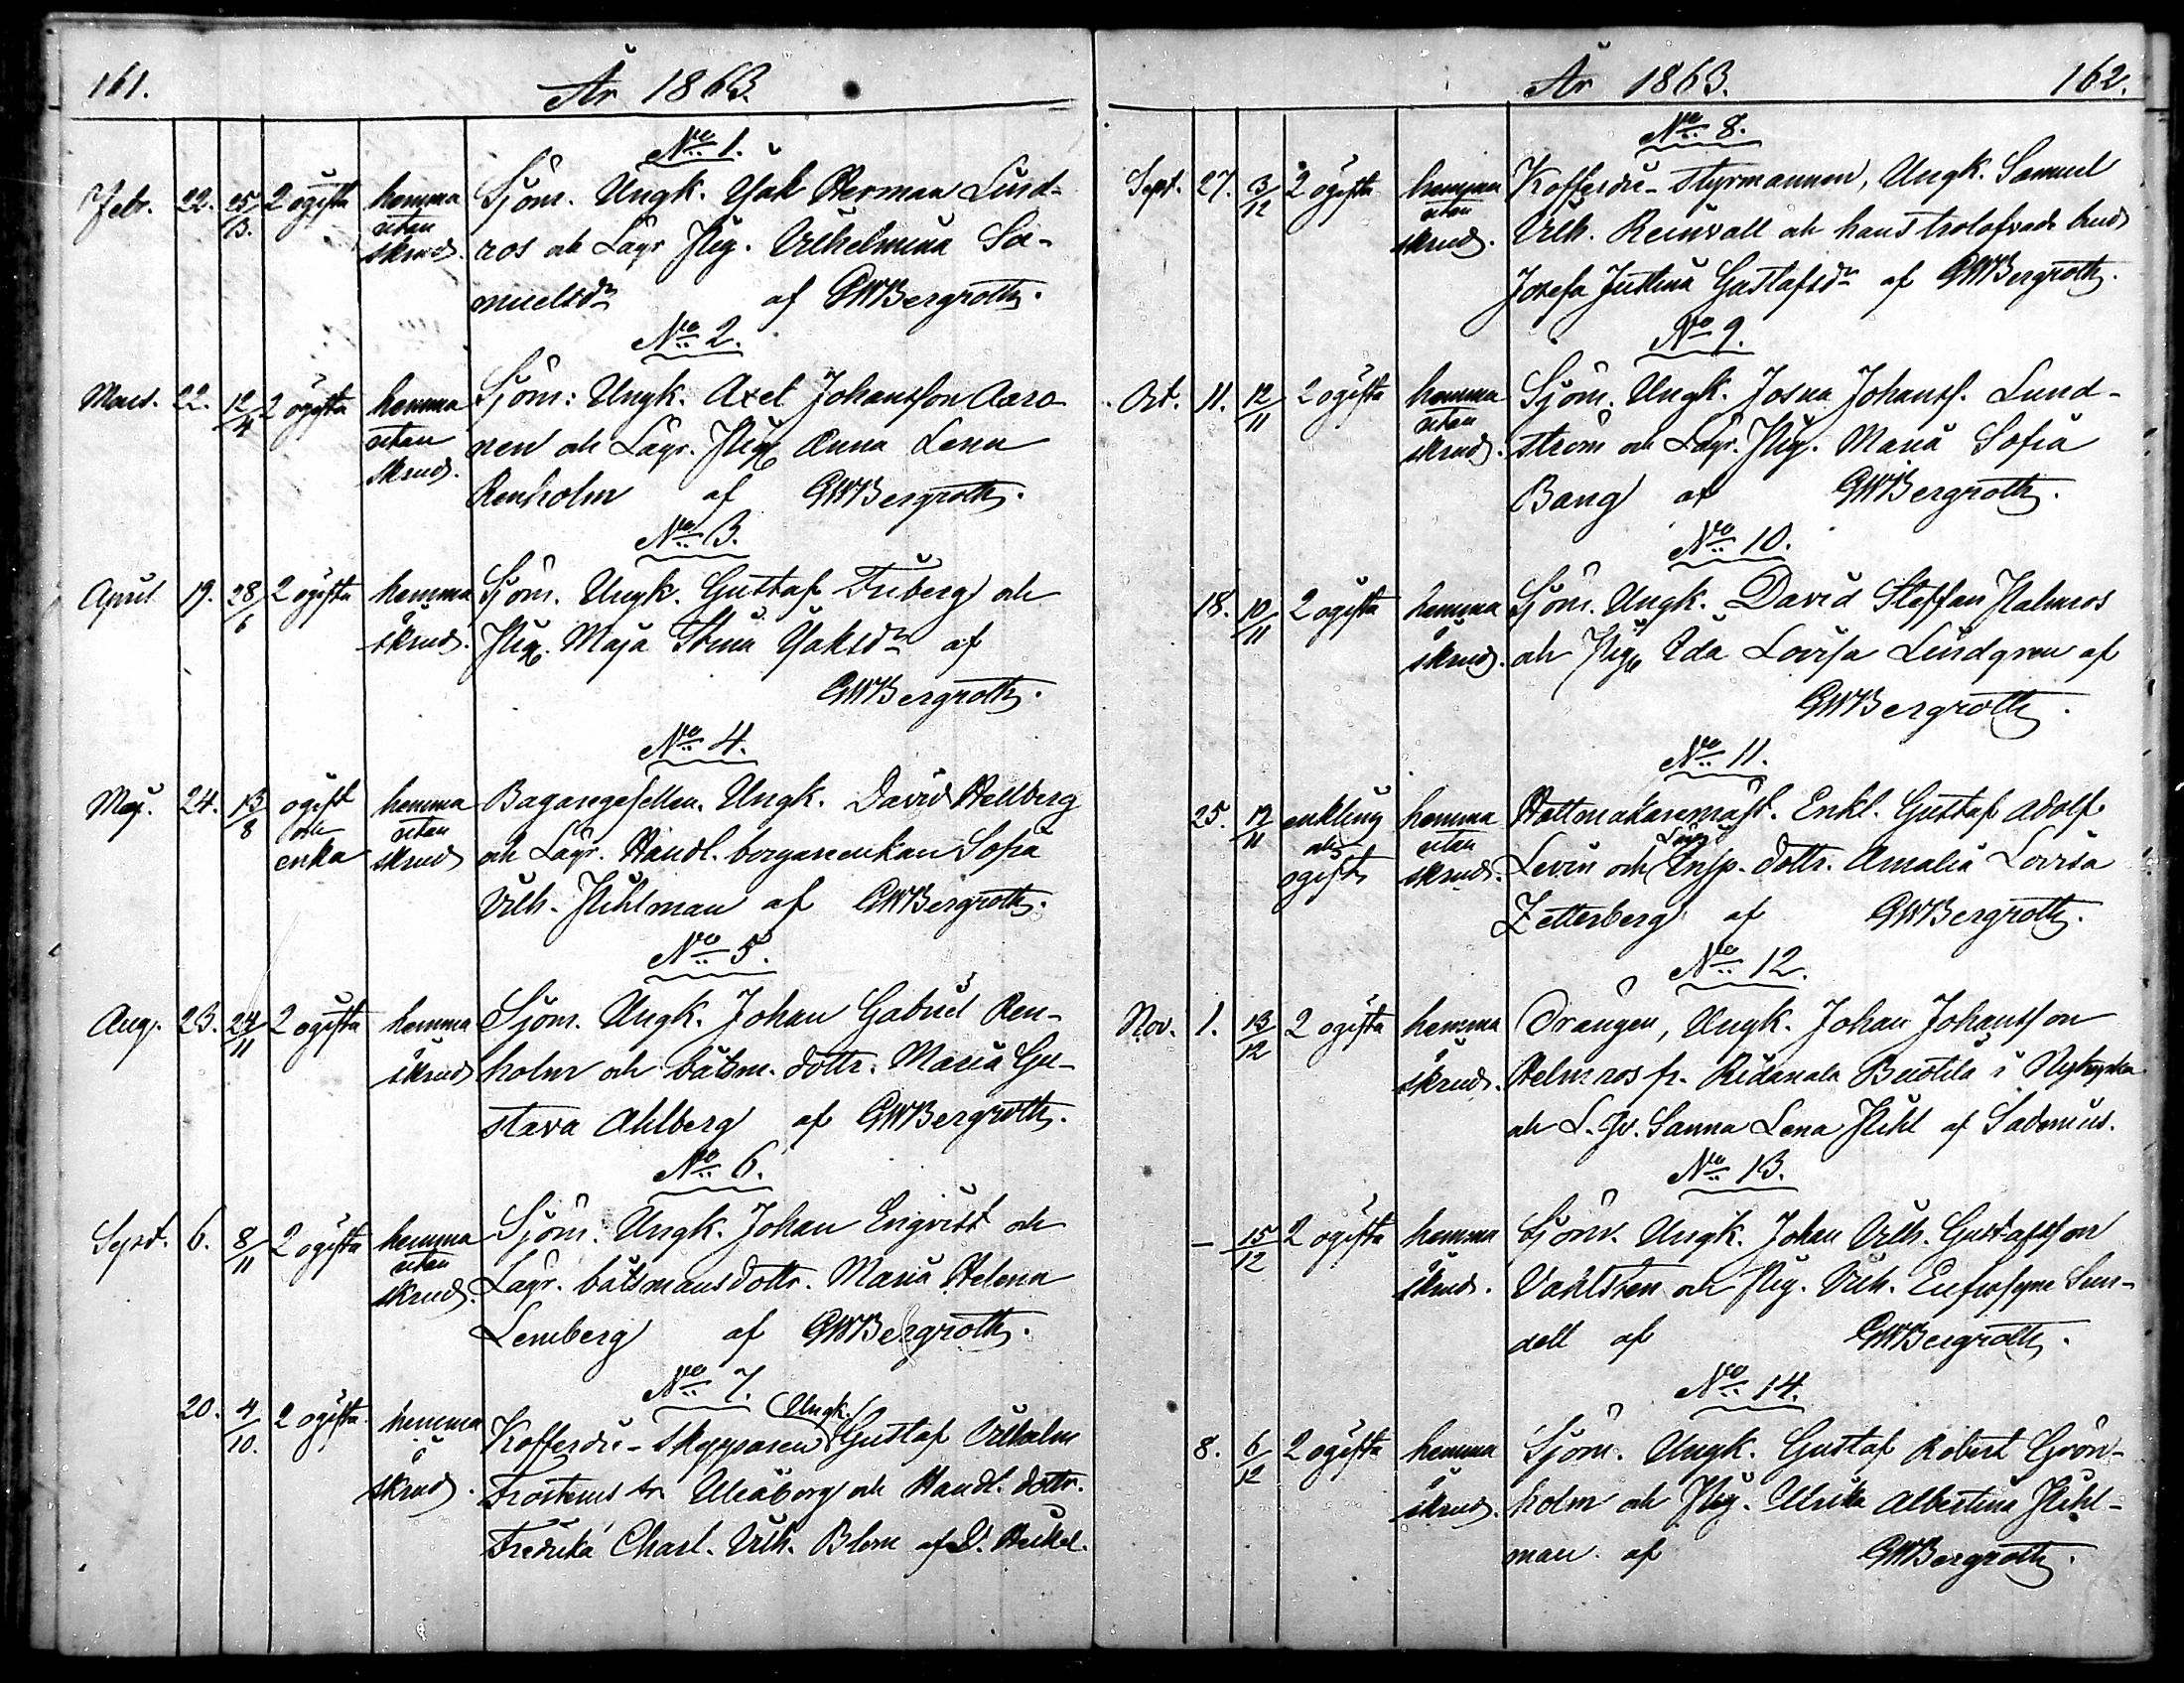 161.
År 1863.
No 1.
Febr. 22. 25/3. 2 ogifta hemma utan skrud. Sjöm. Ungk. Isak Herman Lind-
ros och Lägr. Pig. Vilhelmina Sa-
muelsdr af GWBergroth.
No 2.
Mars. 22. 12/4 2 ogifta hemma utan skrud. Sjöm: Ungk. Axel Johansson Aaro-
nen och Lägr. Pig. Anna Lena
Renholm af GWBergroth.
No 3.
April 19. 28/6 2 ogifta hemma i skrud. Sjöm. Ungk. Gustaf Friberg och
Pig. Maja Stina Isaksdr af
GWBergroth.
No 4.
Maj. 24. 13/8 ogift och enka hemma utan skrud Bagaregesellen. Ungk. David Hellberg
och Lägr. Handl. borgareenkan Sofia
Vilh. Pihlman af GWBergroth.
No 5.
Aug. 23. 24/11 2 ogifta hemma i skrud Sjöm. Ungk. Johan Gabriel Ren-
holm och båtsm. dottr. Maria Gu-
stava Ahlberg af GWBergroth.
No 6.
Sept. 6. 8/11 2 ogifta hemma utan skrud. Sjöm. Ungk. Johan Enqvist och
Lägr. båtsmansdottr. Maria Helena
Lemberg af GWBergroth.
No 7.
20. 4/10. 2 ogifta. hemma i skrud. Kofferdi-skepparen Ungk. Gustaf Vilhelm
Frosterus fr. Uleåborg och Handl. dottr.
Fredrika Charl. Vilh. Blom af D. Heikel.
År 1863.
162.
No 8.
Sept. 27. 3/12 2 ogifta hemma utan skrud. Kofferdi-styrmannen, Ungk. Samuel
Vilh. Reinvall och hans trolofvade brud
Josefa Justina Gustafsdr af GWBergroth.
No 9.
Oct. 11. 12/11 2 ogifta hemma utan skrud. Sjöm. Ungk. Josua Johanss. Lund-
ström och Lägr. Pig. Maria Sofia
Bang af GWBergroth.
No 10.
18. 10/11 2 ogifta hemma i skrud. Sjöm. Ungk. David Steffan Palmros
och Pig. Ida Lovisa Lindgren af
GWBergroth.
No 11.
25. 12/11 enkling och ogift hemma utan skrud. Hattmakaremäst. Enkl. Gustaf Adolf
Levin och Lägr. Insp. dottr. Amalia Lovisa
Zetterberg af GWBergroth.
No 12.
Nov. 1. 13/12 2 ogifta hemma i skrud. Drängen, Ungk. Johan Johansson
Helmros fr. i Nykyrka
och L. Jv. Sanna Lena Pihl af Sadenius.
No 13.
— 15/12 2 ogifta hemma i skrud. Sjöm. Ungk. Johan Vilh. Gustafsson
Vahlsten och Pig. Vilh. Eufrosyne Sun-
dell af GWBergroth.
No 14.
8. 6/12 2 ogifta hemma i skrud. Sjöm. Ungk. Gustaf Robert Grön-
holm och Pig. Ulrika Albertina Pihl-
man. af GWBergroth.